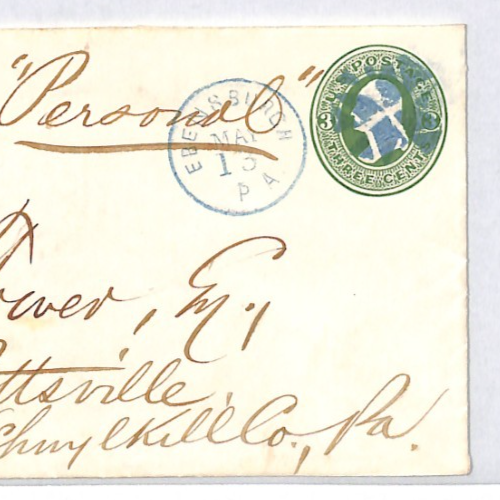 "Personal"
EBENSBURGH
MAR
13
PA
U.S. POSTAGE
3 3
THREE CENTS
ower, Esq.
ttsville,
chuylkill Co., Pa.